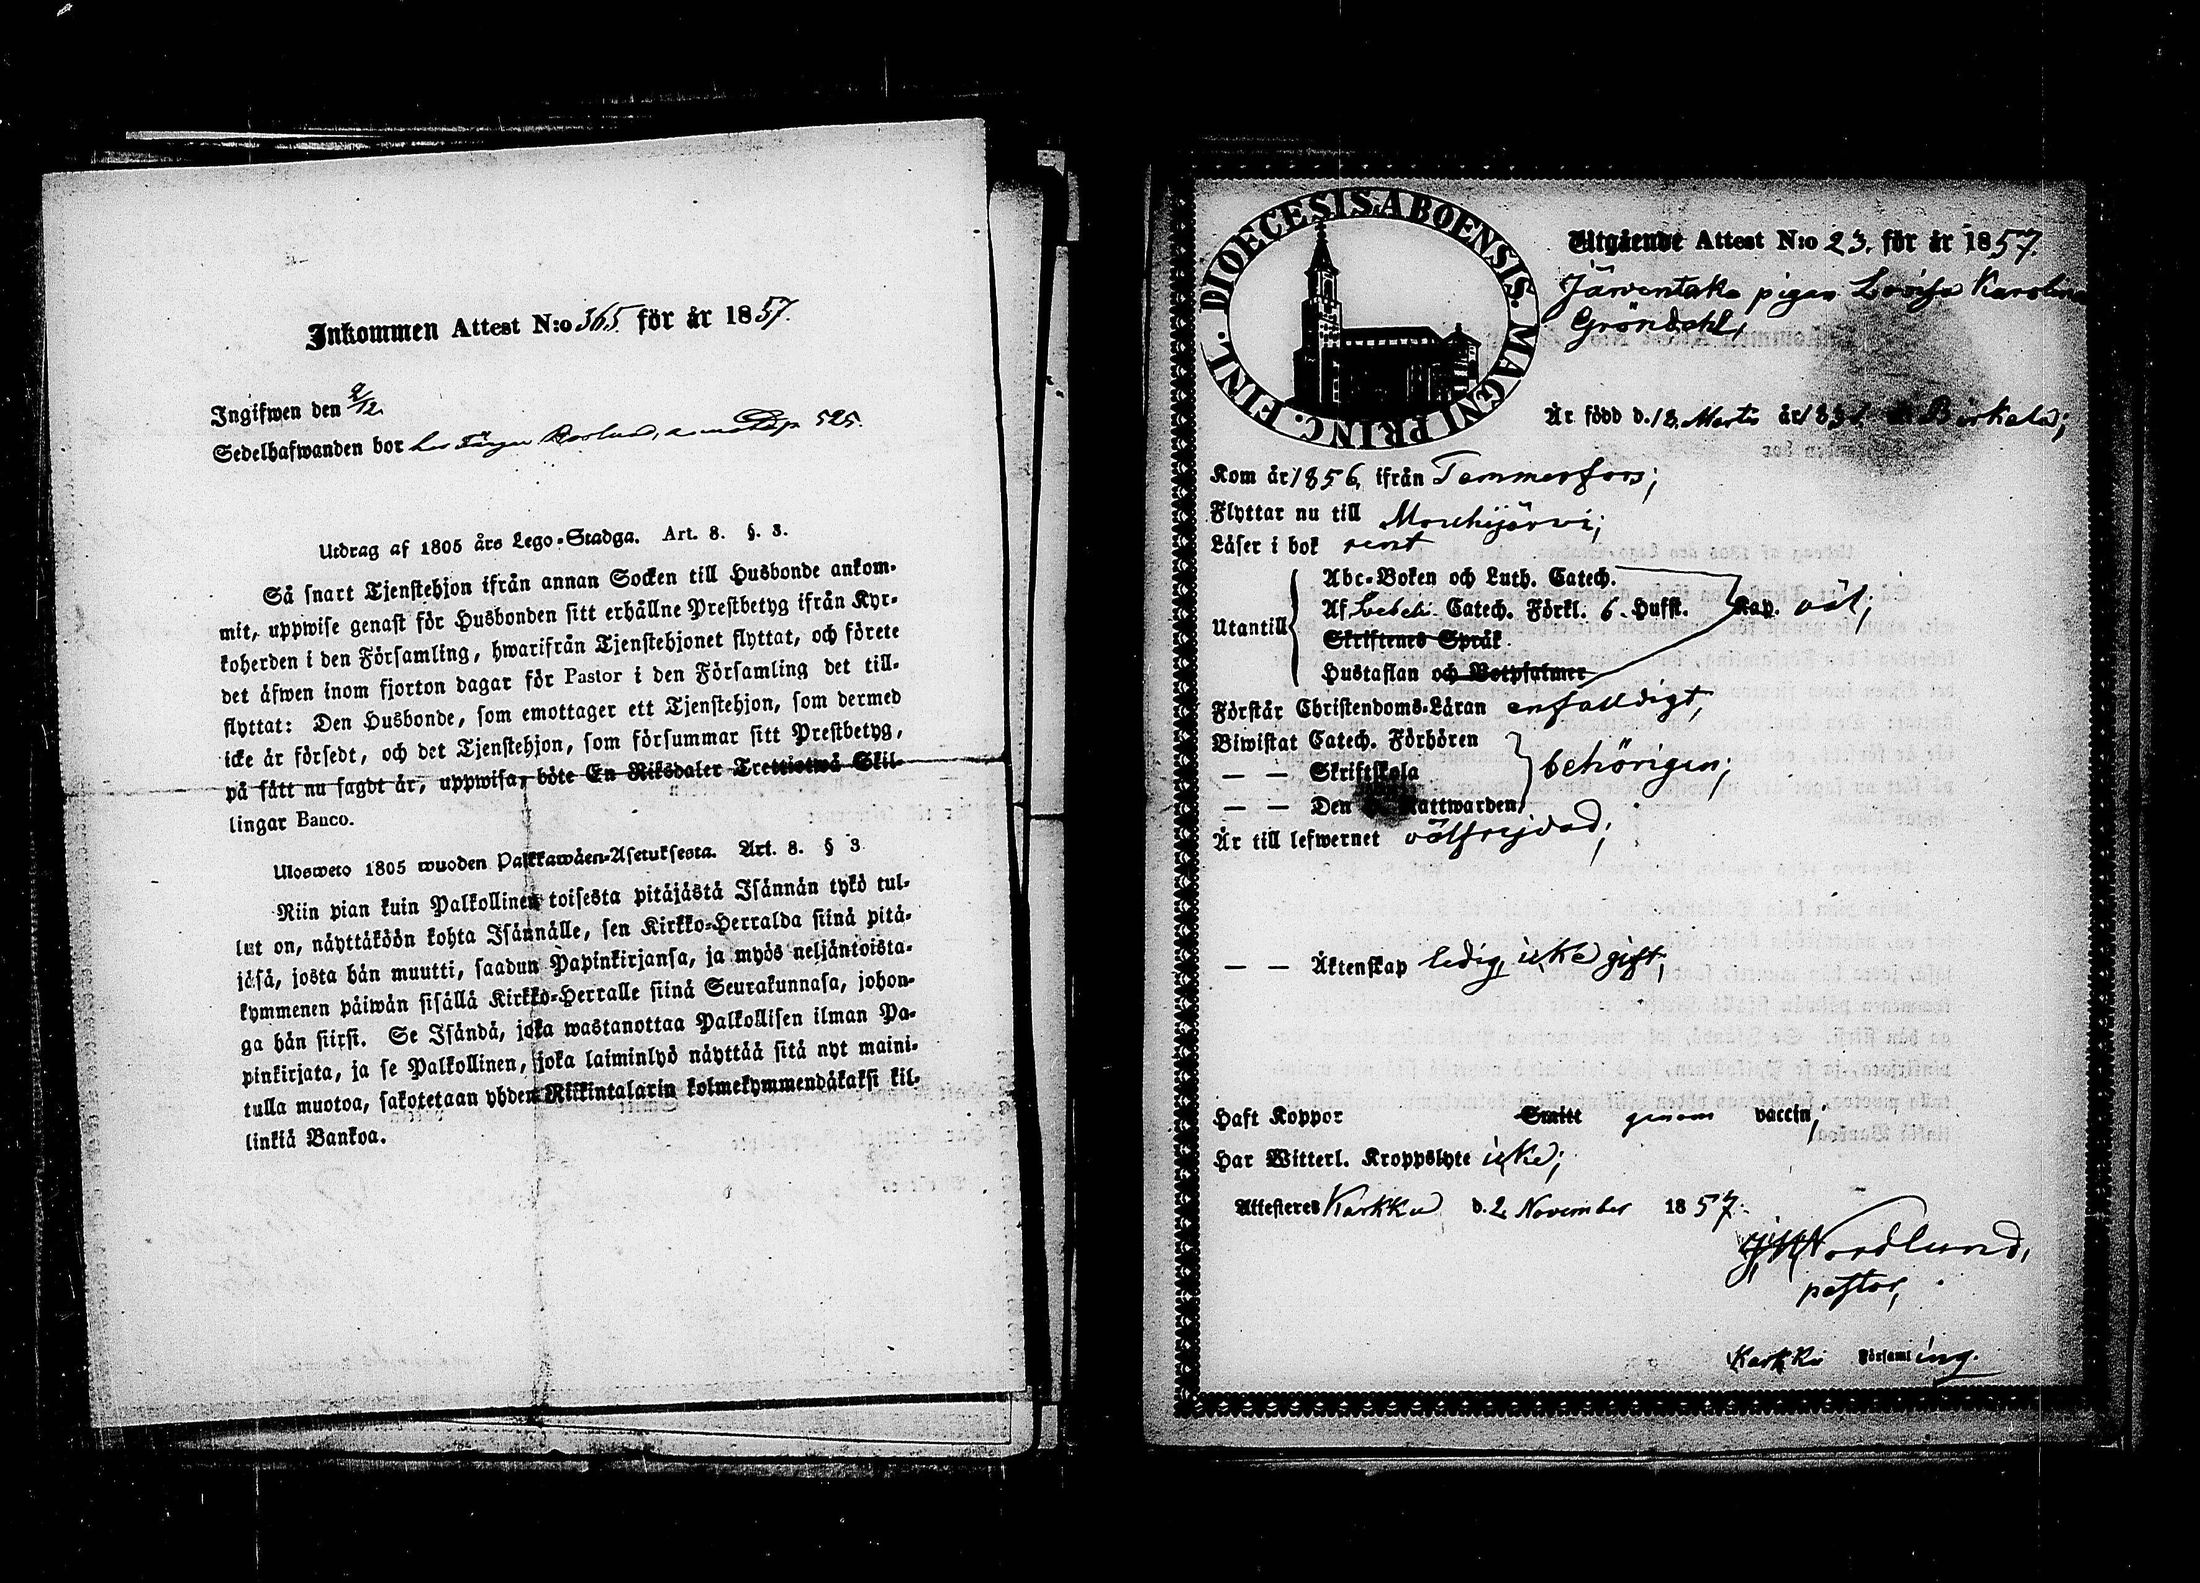 Inkommen Attest N:o 365 för år 1857.
Ingifwen den 2/12.
Sedelhafwanden bor hos 525.
Utdrag af 1805 års Lego-Stadga. Art. 8. §. 3.
Så snart Tjenstehjon ifrån annan Socken till Husbonde ankom-
mit, uppwise genast för Husbonden sitt erhållne Prestbetyg ifrån Kyr-
koherden i den Församling, hwarifrån Tjenstehjonet flyttat, och förete
det äfwen inom fjorton dagar för Pastor i den Församling det till-
flyttat: Den Husbonde, som emottager ett Tjenstehjon, som dermed
icke är försedt, och det Tjenstehjon, som försummar sitt Prestbetyg,
på sätt nu sagdt är, uppwisa, böte En Riksdaler Trettiotwå Skil-
lingar Banco.
Ulosweto 1805 wuoden Palkkawäen-Asetuksesta. Art. 8. § 3
Niin pian kuin Palkollinen toisesta pitäjästä Isännän tykö tul-
lut on, näyttäköön kohta Isännälle, sen Kirkko-Herralda siinä pitä-
jäsä, josta hän muutti, saadun Papinkirjansa, ja myös neljäntoista-
kymmenen päiwän sisällä Kirkko-Herralle siinä Seurakunnasa, johon-
ga hän siirsi. Se Isändä, joka wastanottaa Palkollisen ilman Pa-
pinkirjata, ja se Palkollinen, joka laiminlyö näyttää sitä nyt maini-
tulla muotoa, sakotetaan yhden Riikintalarin kolmekymmendäkaksi kil-
linkiä Bankoa.
DIOECESIS ABOENSIS. MAGNI PRINC. FINL.
Utgående Attest N:o 23. för år 1857.
Järventaka pigan Lovisa Karolina
Gröndahl,
Är född d. 18 Martii år 183 i Birkala;
Kom år 1856, ifrån Tammerfors;
Flyttar nu till Mouhijärvi;
Läser i bok rent
Abc-Boken och Luth. Catech.
Utantill Af Svebeli Catech. Förkl. 6. Hufst. Kap. väl;
Skriftenes Språk
Hustaflan och Botpsalmer
Förstår Christendoms-Läran enfaldigt,
Biwistat Catech. Förhören
— — Skriftskola behörigen;
— — Den Nattwarden
Är till lefwernet välfrejdad;
— — Äktenskap ledig, icke gift;
Haft Koppor Smitt genom vaccin;
Har Witterl. Kroppslyte icke;
Attesteres Karkku d. 2 November 1857.
Nordlund,
pastor,
Karkku Församling.